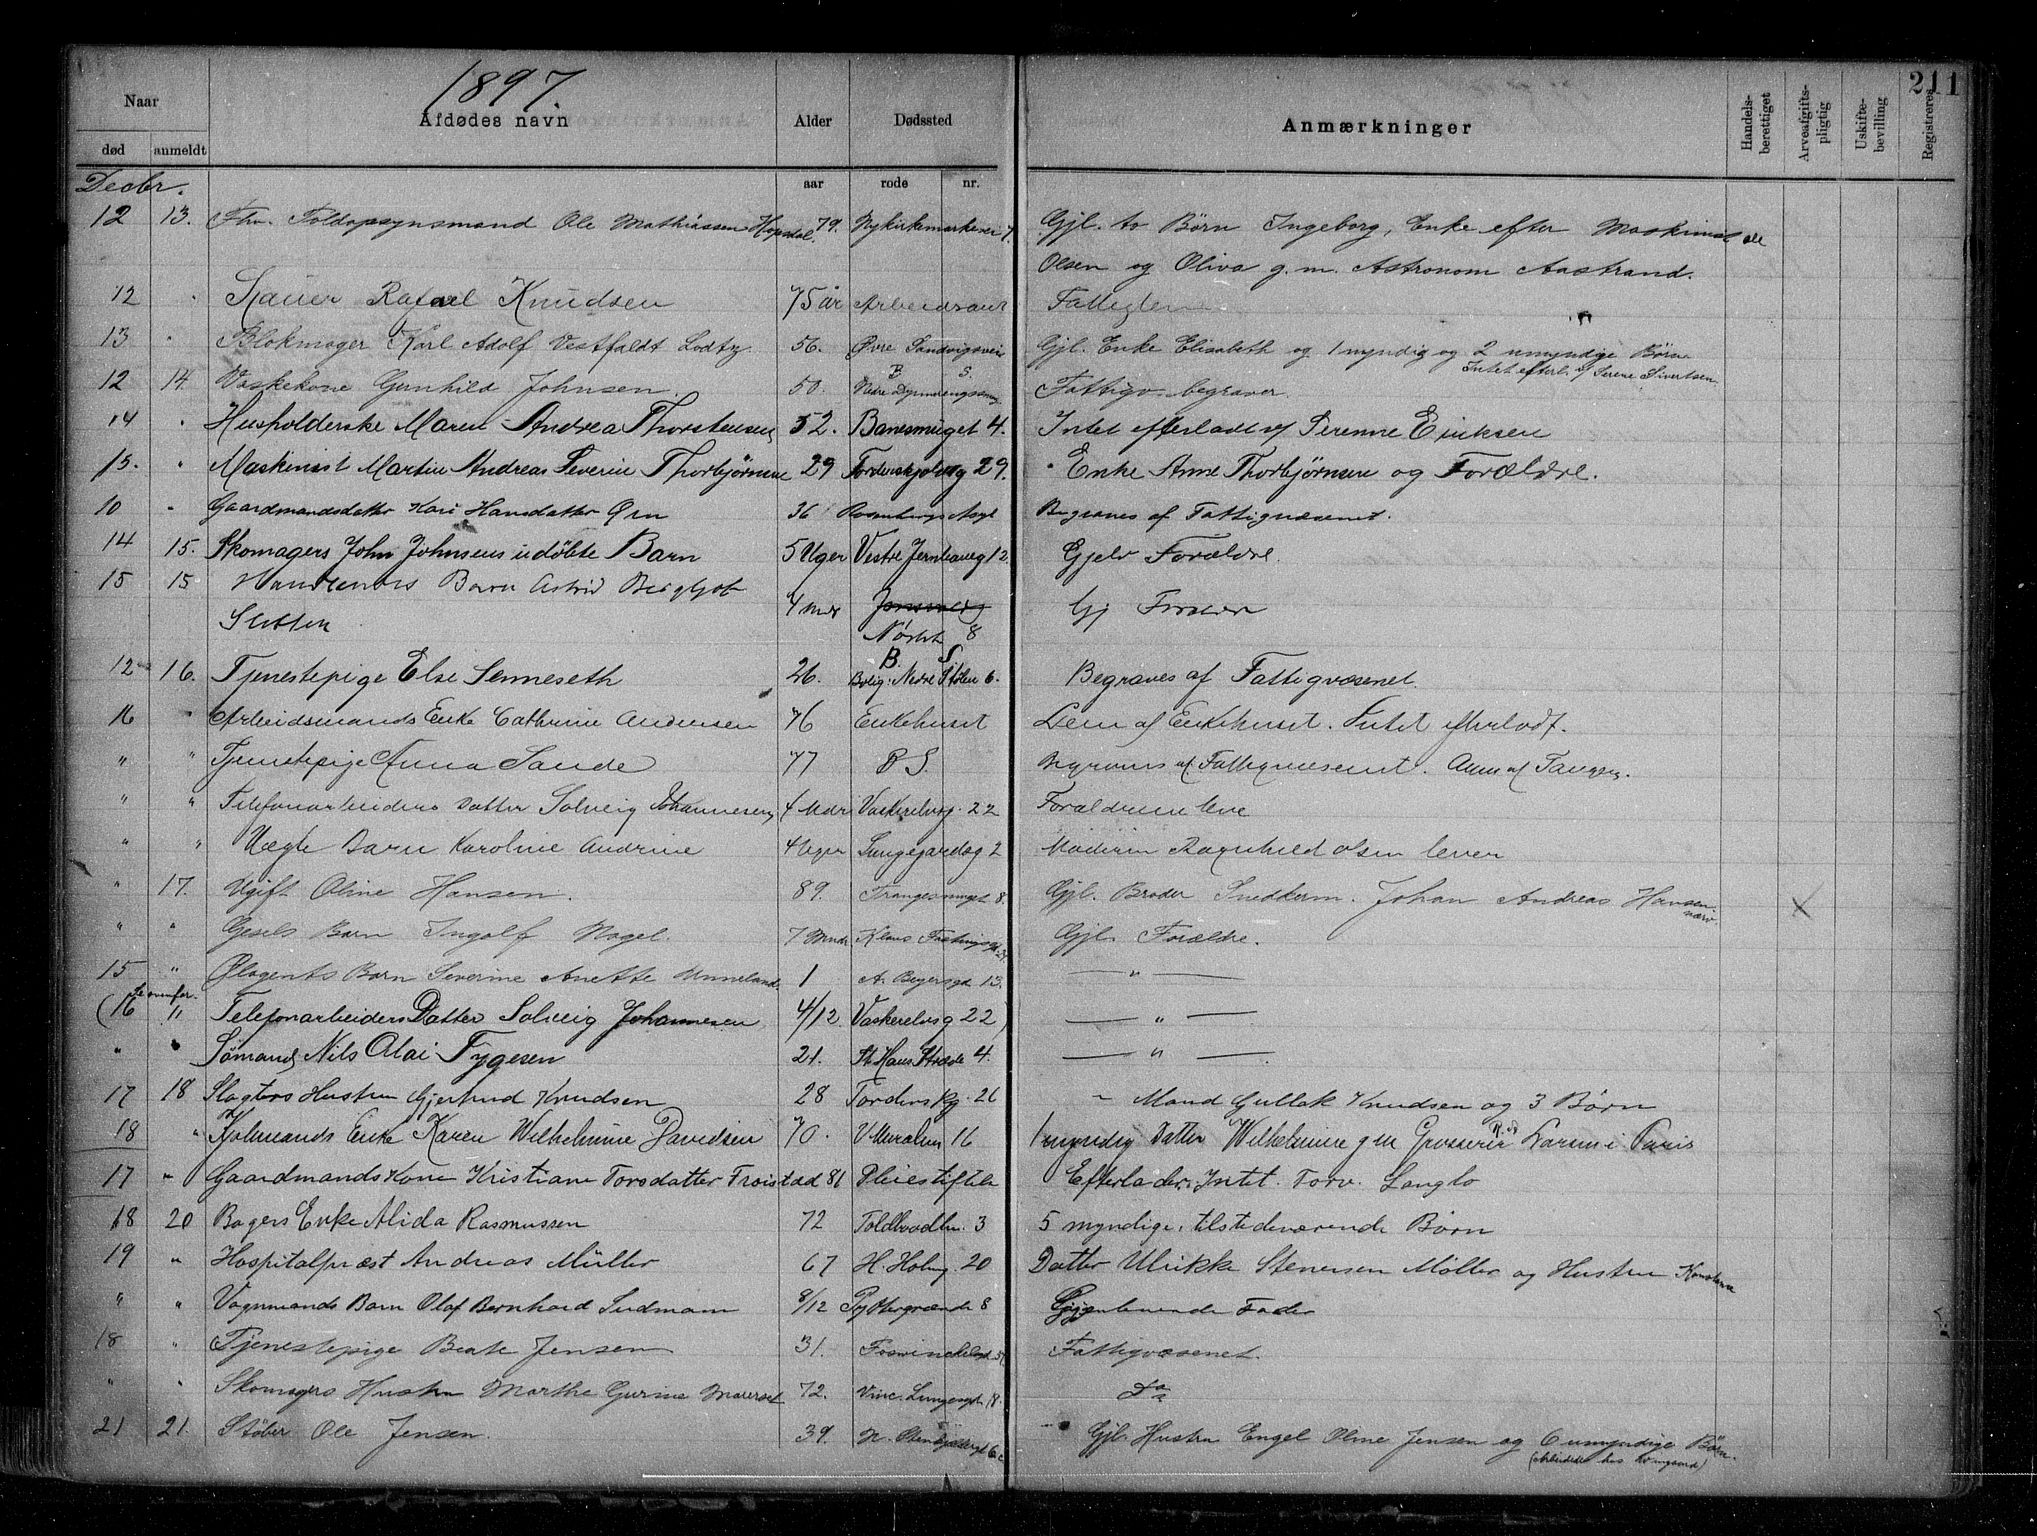 1897.
211
Naar
Afdødes navn
Alder
Dødssted
Anmærkninger
Handels-berettiget
Arveafgifts-pligtig
Uskifte-bevilling
Registreres
død anmeldt
aar rode nr.
Decbr.
12 13. Fhv. Toldopsynsmand Ole Mathiassen Hopsdal. 79. Nykirkemarkevei 7. Gjl. to Børn Ingeborg, Enke efter Maskinist Ole
Olsen og Oliva g. m. Astronom Aastrand.
12 " Rafael Knudsen 75 år Arbeidsanst Fattiglem
13 " Blokmager Karl Adolf Vestfaldt Lodtz 56. Øvre Sandvigsvei Gjl. Enke Elisabeth og 1 myndig og 2 umyndige Børn
Intet efterl. af Serene Sivertsen.
12 14. Vaskekone Gunhild Johnsen 50. B S. Nedre Fattigv. begraver.
14 " Husholderske Maren Andrea Thorstensen 52. Banesmuget 4. Intet efterladt af Serenne Eriksen
15. " Maskinist Martin Andreas Severin Thorbjørnsen 29 Tordenskjoldsg 29. " Enke Anne Thorbjørnsen og Forældre.
10 " Gaardmandsdatter Kari Hansdatter Ørn 36 Rosenbergs Asyl Begraves af Fattigvæsenet.
14 15. Skomagers John Johnsens udøbte Barn 5 Uger Vestre Jernbaneg 12. Gjelv Forældre.
15 15 Barn Astrid Bergljot 4 mdr
Sletten Nøstet 8 Gj Forældre
12 16. Tjenestepige Else Senneseth 26. B. S Bolig: Nedre Stølen 6. Begraves af Fattigvæsenet.
16 " Arbeidsmands Enke Cathrine Andersen 76 Enkehuset Lem af Enkehuset. Intet efterladt.
" " Tjenestepige Anna Sande 77 B S. Begraves af Fattigvæsenet. Anm af Tangen.
" " Telefonarbeiders Datter Solveig Johannesen 4 Mdr Vaskerelvsg. 22 Forældrene leve
" " Uægte Barn Karoline Andrine 4 Uger Lungegardsg 2 Moderen Ragnhild Olsen lever
" 17. Ugift Oline Hansen. 89. Trangesmuget 8. Gjl. Broder Snedkerm. Johan Andreas Hansen
X
" " Gesels Barn Ingolf Nagel. 7 Mndr Klaus Fastings Gjl. Forældre.
15 " Ølagents Barn Severine Anette Unneland 1 A. Beyersgd 13. — " —
Se ovenfor.
(16 " Telefonarbeiders Datter Solveig Johannesen 4/12 Vaskerelvsg 22) — " —
" " Sømand Nils Olai Tygesen 21. St Hans Stræde 4. — " —
17 18 Slagters Hustru Gjertrud Knudsen 28 Tordenskg. 26 " Mand Gullak Knudsen og 3 Børn
18 " Enke Karen Wilhelmine Davidsen 70. V Muralm 16 1 myndig Datter Wilhelmine gm Grosserer Larsen i Paris
17 " Gaardmands Kone Kristiane Torsdatter Troistad 81 Pleiestiftels Efterlader Intet. Forv. Langlo
18 20 Bagers Enke Alida Rasmussen 72 Toldbodalm. 3 5 myndige, tilstedeværende Børn
19 " Hospitalpræst Andreas Müller 67 H. Holmg. 20 Datter Ulrikke Stenersen Møller og Hustru
" " Vognmands Barn Olaf Bernhard Sudmann 8/12 Pyttergrænde 8 Gjenlevende Fader
18 " Tjenestepige Beate Jensen 31. Foswinckelsgd 51 Fattigvæsenet.
" " Skomagers Hustru Marthe Gurine 72. Vinc. Lungesgd 18. Do
21 21. Støber Ole Jensen. 39. N. Stenkjeldergt 6c Gjl. Hustru Engel Oline Jensen og 6 umyndige Børn.
(Arbeidede hos )